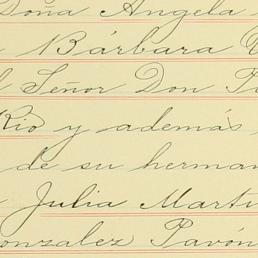 Doña Angela
Bárbara
Señor Don
Rio y además
de su herman
Julia Marti
Gonzalez Pavón